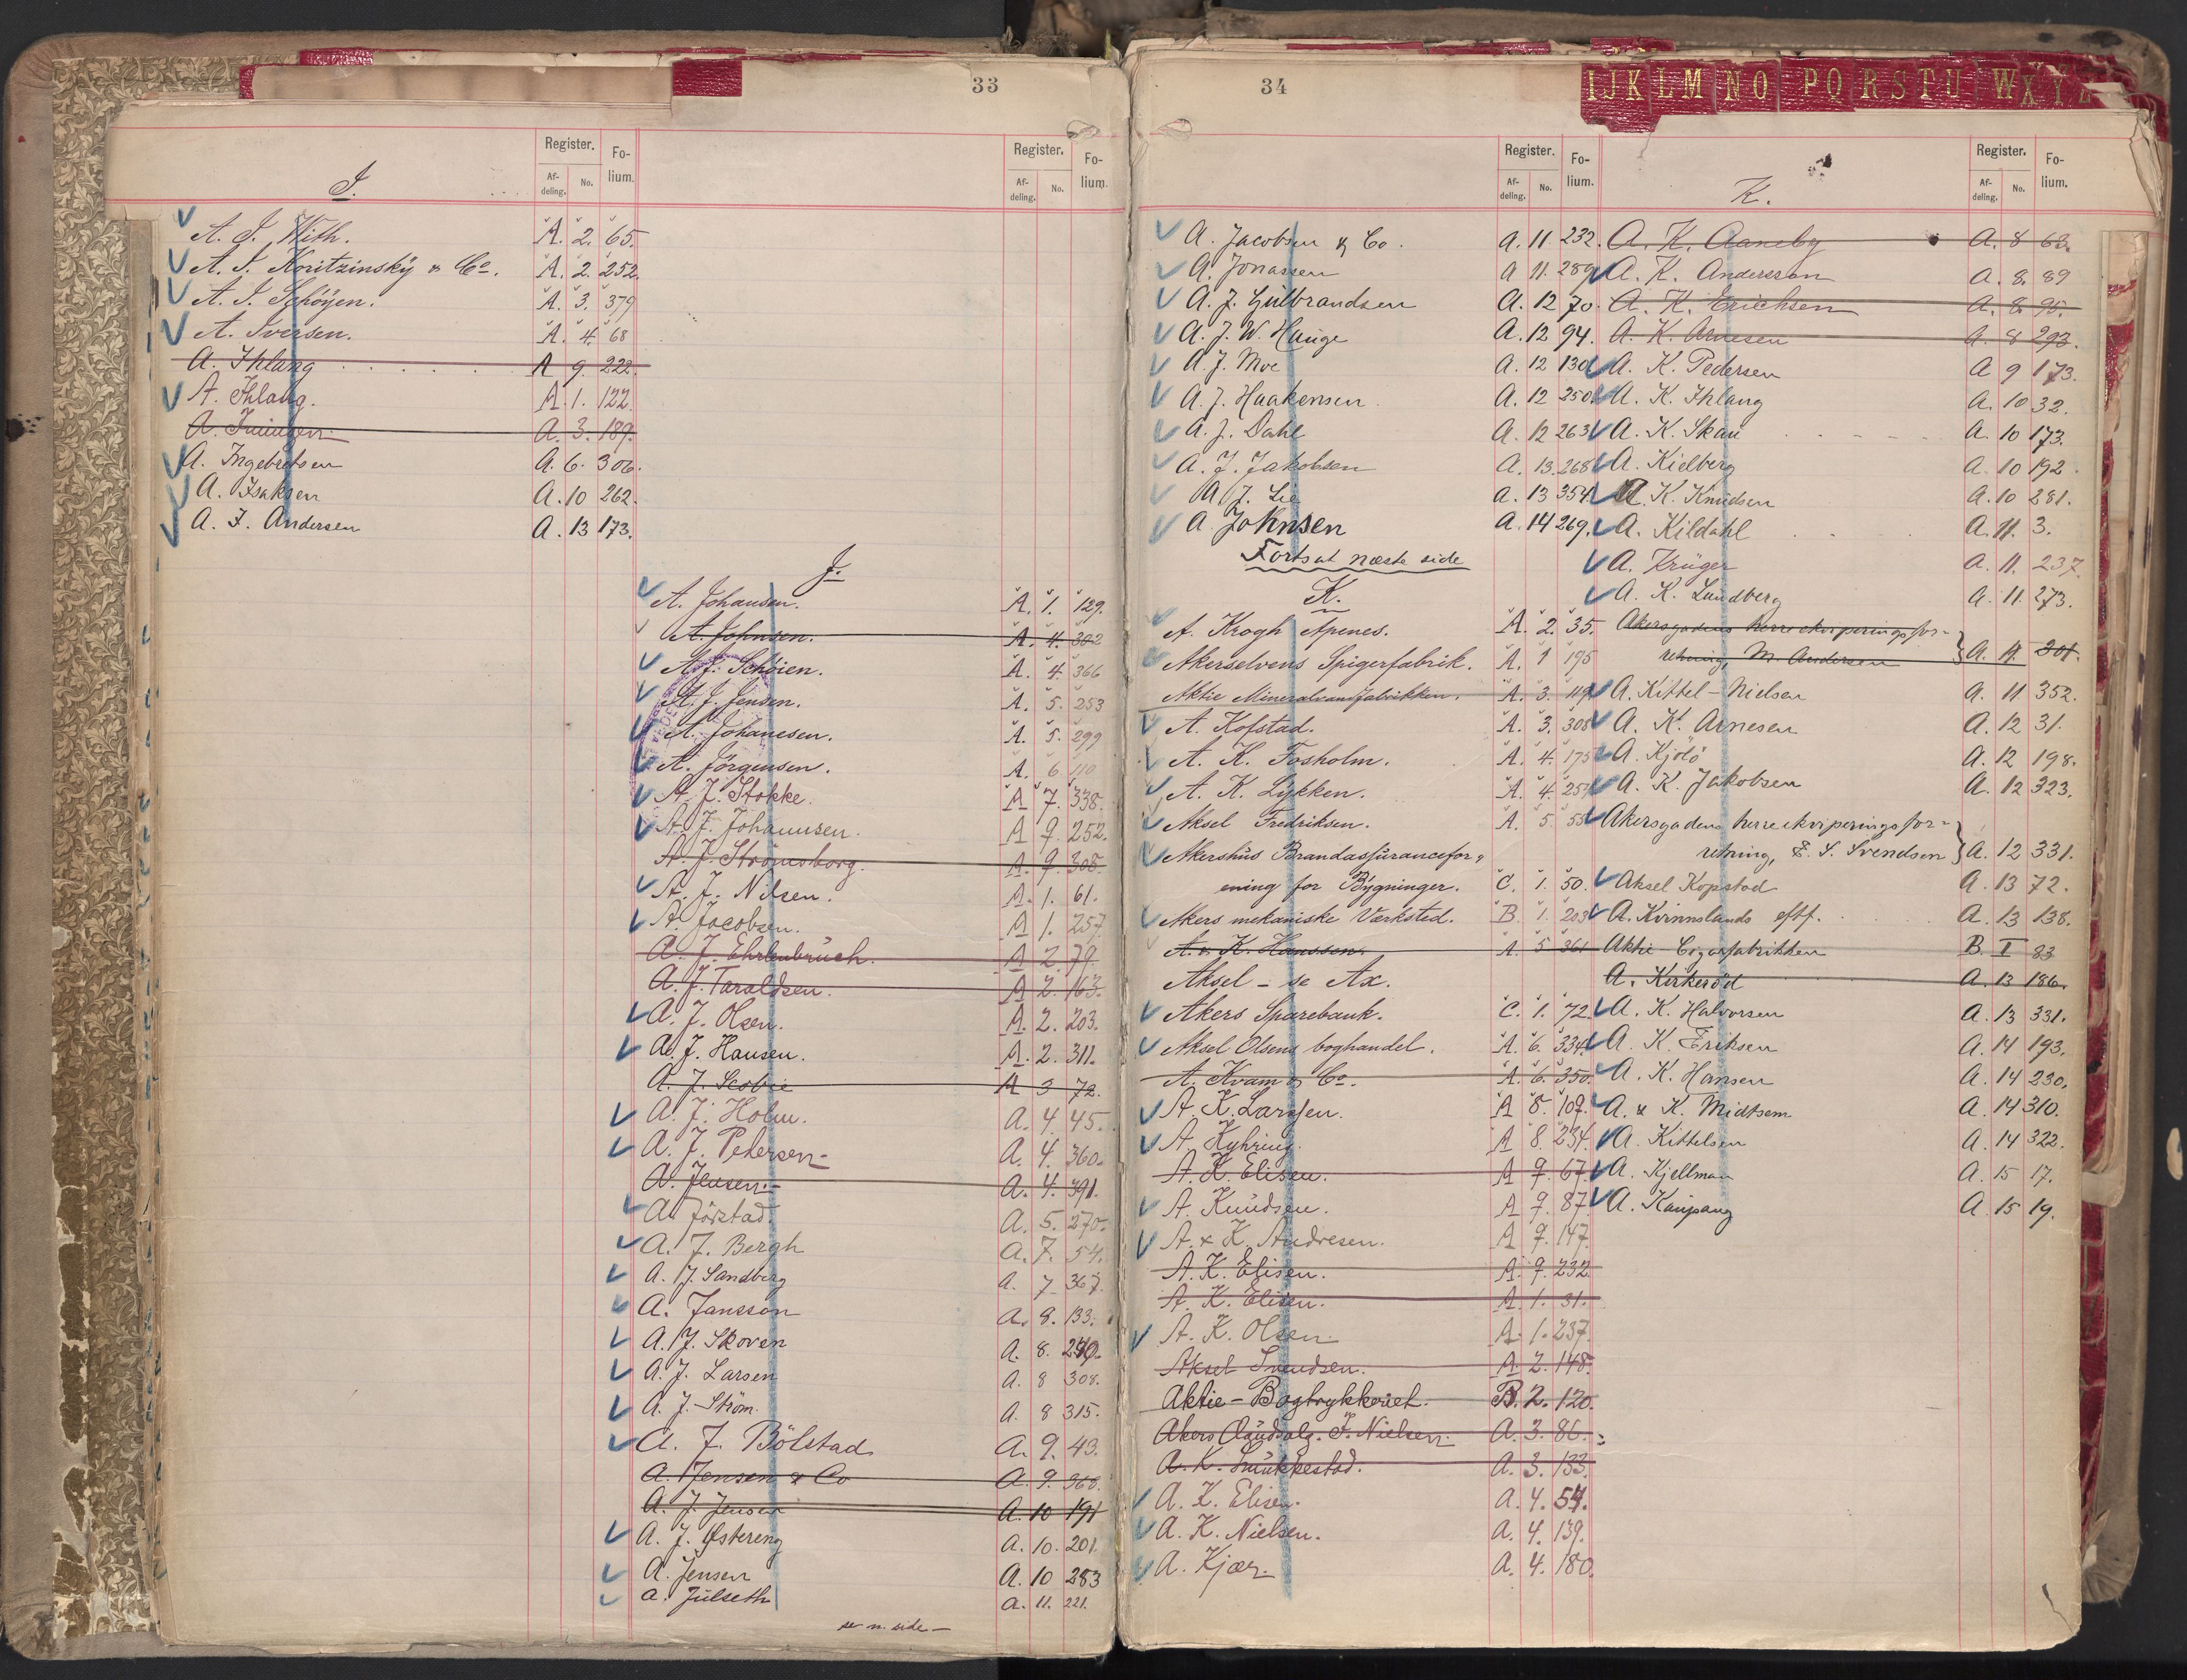 33
Register. Fo-
Af- No. lium.
deling.
I.
A. I. With. A. 2. 65.
A. I. Koritzinsky & Co. A. 2. 252.
A. I. Schöyen. A. 3. 379
A. Iversen. A. 4. 68
A. Ihlang A 9. 222.
A. Ihlang. A. 1. 122.
A. A. 3. 189.
A. Ingebretsen A. 6. 306.
A. Isaksen A. 10 262.
A. I. Andersen A. 13 173.
Register. Fo-
Af- No. lium.
deling.
J.
A. Johansen. A. 1. 129.
A. Johnsen. A. 4. 302
A. J. Schöien. A. 4. 366
A. J. Jensen. A. 5. 253
A. Johanesen. A. 5. 299
A. Jörgensen. A. 6. 110
A. J. Stokke. A 7. 338.
A. J. Johannsen. A 9. 252.
A. J. Strömsborg. A. 9. 305.
A. J. Nilsen. A. 1. 61.
A. Jacobsen. A 1. 257
A. J. Ehrlenbruch. A 2. 79.
A. J. Taraldsen. A 2. 163.
A. J. Olsen. A. 2. 203.
A. J. Hansen. A. 2. 311.
A. J. A 3 72.
A. J. Holm. A. 4. 45.
A. J. Petersen A. 4. 360.
A. Jensen A. 4. 391.
A. Jörstad. A. 5. 270.
A. J. Bergh A. 7. 54.
A. J. Sandberg A. 7 367
A. Jansson A. 8. 133.
A. J. Skoven A. 8. 240.
A. J. Larsen A. 8 308.
A. J. Ström. A. 8 315.
A. J. Bölstad A. 9. 43.
A. Jensen & Co A. 9. 368.
A. J. Jensen A. 10 191
A. J. Østereng A. 10. 201.
A. Jensen A. 10 283
A. Julseth A. 11. 221.
se n. side —
34
IJ K L M N O P Q R S T U W X Y Z
Register. Fo-
Af- No. lium.
deling.
A. Jacobsen & Co. A. 11. 232.
A. Jonassen A 11. 289
A. J. Gulbrandsen A. 12 70.
A. J. W. Hauge A. 12 94.
A. J. Moe A. 12 130
A. J. Haakensen A. 12 250
A. J. Dahl A. 12 263
A. J. Jakobsen A. 13. 268
A. J. Lie A. 13 354
A. Johnsen A. 14 269.
Fortsat næste side
K.
A. Krogh Apenes. A. 2. 35.
Akerselvens Spigerfabrik. A. 1 195
Aktie Mineralvandfabrikken. A. 3. 119
A. Kofstad. A. 3. 308
A. K. Fosholm. A. 4. 175
A. K. Lykken. A. 4. 257
Aksel Fredriksen. A. 5. 55
Akershus Brandassurancefor-
ening for Bygninger. C. 1. 50.
Akers mekaniske Værksted. B 1. 203
A. & K. Hanssen. A. 5 361
Aksel – se Ax.
Akers Sparebank. C. 1. 72.
Aksel Olsens boghandel. A. 6. 334
A. Kvam & Co. A. 6. 350.
A. K. Larssen. A 8. 109.
A. Kyhring. A 8 234.
A. K. Elisen. A 9. 67.
A. Knudsen. A 9. 87.
A. & K. Andresen. A 9. 147.
A. K. Elisen. A. 9. 232
A. K. Elisen. A. 1. 31.
A. K. Olsen A. 1. 237.
Aksel Svendsen. A. 2. 148.
Aktie-Bogtrykkeriet. B. 2. 120.
Akers J. Nielsen A. 3. 86.
A. K. Smukkestad. A. 3. 133.
A. K. Elisen. A. 4. 54.
A. K. Nielsen. A. 4. 139.
A. Kjær. A. 4. 180.
Register. Fo-
Af- No. lium.
deling.
K.
A. K. Aaneby A. 8 63.
A. K. Anderson A. 8. 89
A. K. Erichsen A. 8. 95.
A. K. Arnesen A. 8 293.
A. K. Pedersen A 9 173.
A. K. Ihlang A. 10 32.
A. K. Skau A. 10 173.
A. Kielberg A. 10 192
A. K. Knudsen A. 10 281.
A. Kildahl A. 11. 3.
A. Krüger A. 11. 237.
A. K. Lundberg A. 11. 273.
Akersgadens herreekviperingsfor-
retning, M. Andersen A. 11. 301.
A. Kittel-Nielsen A. 11 352.
A. K. Arnesen A. 12 31.
A. Kjölö A. 12 198.
A. K. Jakobsen A. 12 323.
Akersgadens herreekviperingsfor-
retning, E. S. Svendsen A. 12 331.
Aksel Kopstad A. 13 72.
A. Kvinnslands eftf. A. 13 138.
Aktie-Cigarfabrikken B. I 83
A. Kirkeröd A. 13 186.
A. K. Halvorsen A. 13 331.
A. K. Eriksen A. 14 193.
A. K. Hansen A. 14 230.
A. & K. Midtsem A. 14 310.
A. Kittelsen A. 14 322.
A. Kjellman A. 15 17.
A. Kaupang A. 15 19.